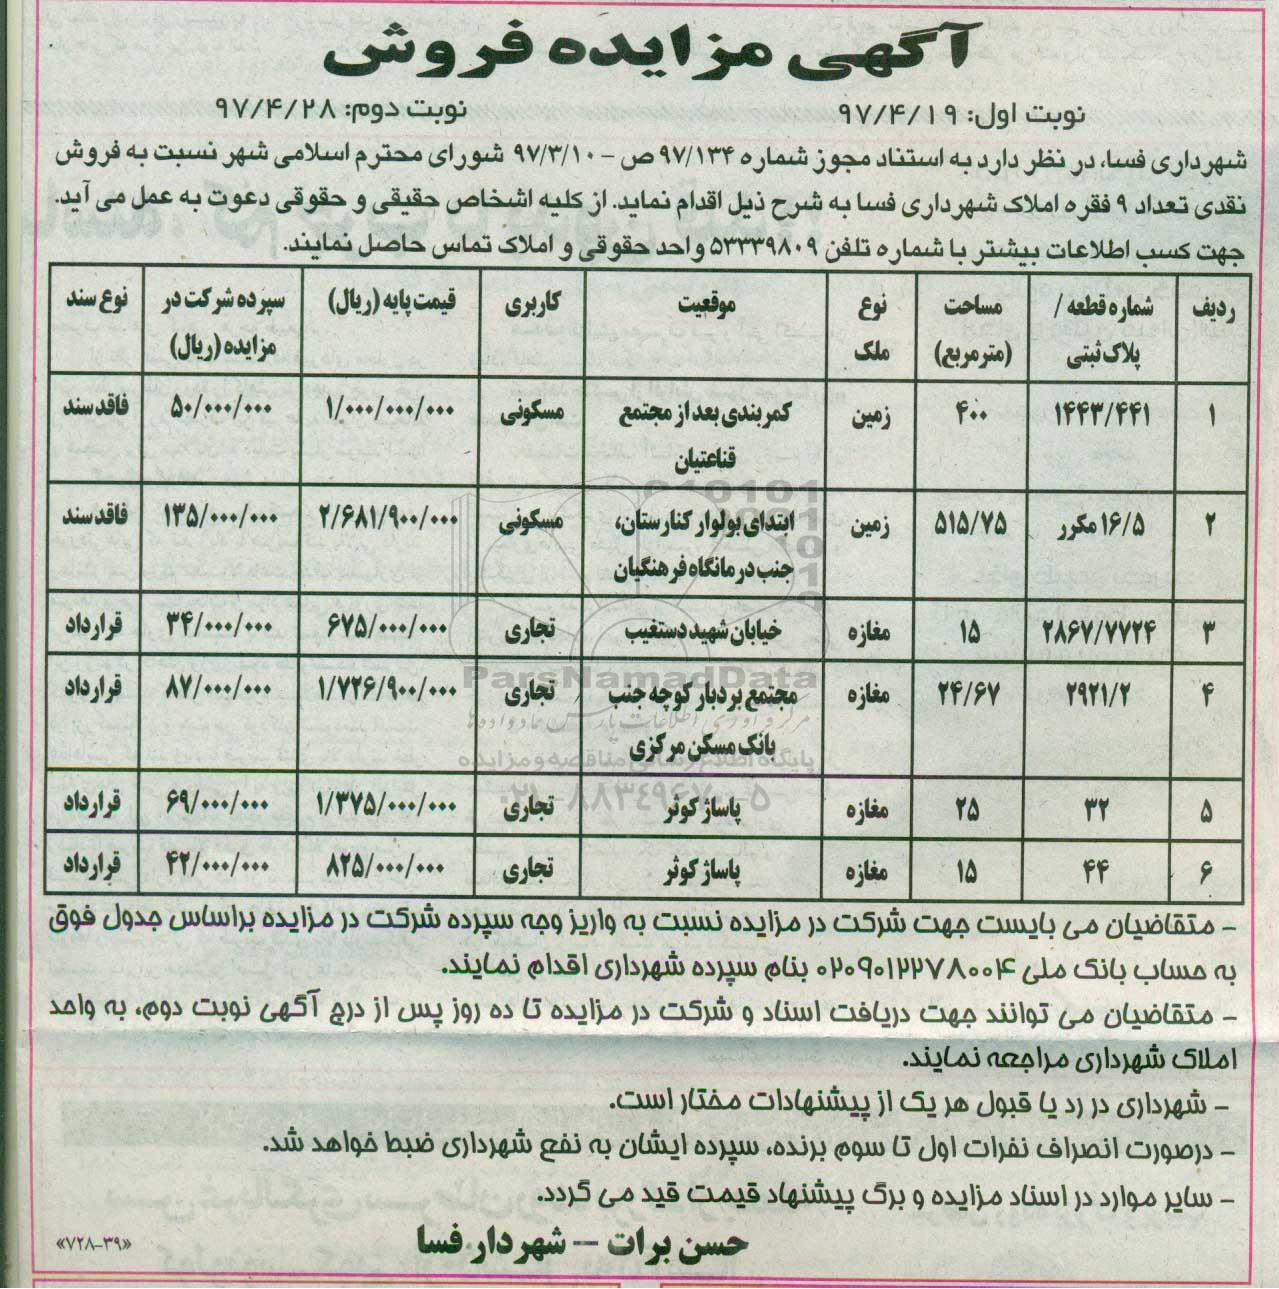 آگهی مزایده فروش
نوبت اول: ۹۷/۴/۱۹ نوبت دوم: ۹۷/۴/۲۸
شهرداری فسا، در نظر دارد به استناد مجوز شماره ۹۷/۱۳۴ص - ۹۷/۳/۱۰ شورای محترم اسلامی شهر نسبت به فروش
نقدی تعداد ۹ فقره املاک شهرداری فسا به شرح ذیل اقدام نماید. از کلیه اشخاص حقیقی و حقوقی دعوت به عمل می آید.
جهت کسب اطلاعات بیشتر با شماره تلفن ۵۳۳۳۹۸۰۹ واحد حقوقی و املاک تماس حاصل نمایند.
ردیف شماره قطعه / مساحت نوع موقعیت کاربری قیمت پایه (ریال) سپرده شرکت در نوع سند
پلاک ثبتی (مترمربع) ملک مزایده (ریال)
۱ ۱۴۴۳/۴۴۱ ۴۰۰ زمین کمربندی بعد از مجتمع مسکونی ۱/۰۰۰/۰۰۰/۰۰۰ ۵۰/۰۰۰/۰۰۰ فاقد سند
قناعتیان
۲ ۱۶/۵ مکرر ۵۱۵/۷۵ زمین ابتدای بولوار کنارستان، مسکونی ۲/۶۸۱/۹۰۰/۰۰۰ ۱۳۵/۰۰۰/۰۰۰ فاقد سند
جنب درمانگاه فرهنگیان
۳ ۲۸۶۷/۷۷۲۴ ۱۵ مغازه خیابان شهید دستغیب تجاری ۶۷۵/۰۰۰/۰۰۰ ۳۴/۰۰۰/۰۰۰ قرارداد
۴ ۲۹۲۱/۲ ۲۴/۶۷ مغازه مجتمع بردبار کوچه جنب تجاری ۱/۷۲۶/۹۰۰/۰۰۰ ۸۷/۰۰۰/۰۰۰ قرارداد
بانک مسکن مرکزی
۵ ۳۲ ۲۵ مغازه پاساژ کوثر تجاری ۱/۳۷۵/۰۰۰/۰۰۰ ۶۹/۰۰۰/۰۰۰ قرارداد
۶ ۴۴ ۱۵ مغازه پاساژ کوثر تجاری ۸۲۵/۰۰۰/۰۰۰ ۴۲/۰۰۰/۰۰۰ قرارداد
ParsNamadData
مرکز فرآوری اطلاعات پارس نماد داده ها
پایگاه اطلاع رسانی مناقصه و مزایده
- متقاضیان می بایست جهت شرکت در مزایده نسبت به واریز وجه سپرده شرکت در مزایده براساس جدول فوق
به حساب بانک ملی ۰۲۰۹۰۱۲۲۷۸۰۰۴ بنام سپرده شهرداری اقدام نمایند.
- متقاضیان می توانند جهت دریافت اسناد و شرکت در مزایده تا ده روز پس از درج آگهی نوبت دوم، به واحد
املاک شهرداری مراجعه نمایند.
- شهرداری در رد یا قبول هر یک از پیشنهادات مختار است.
- درصورت انصراف نفرات اول تا سوم برنده، سپرده ایشان به نفع شهرداری ضبط خواهد شد.
- سایر موارد در اسناد مزایده و برگ پیشنهاد قیمت قید می گردد.
حسن برات – شهردار فسا
«۷۲۸-۳۹»